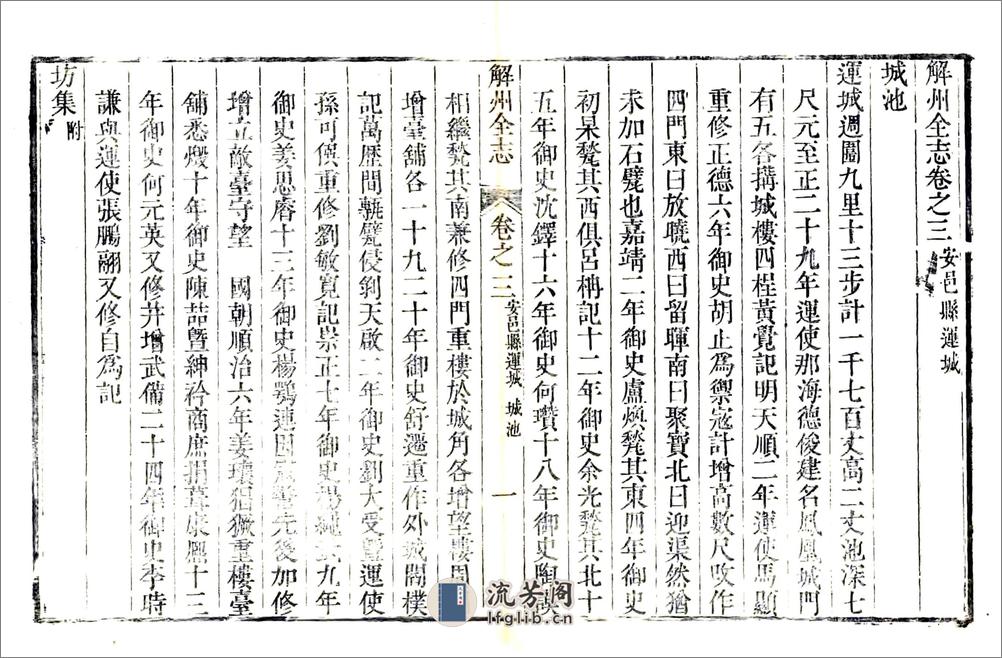 解州全志卷之三 安邑縣運城
城池
運城週圍九里十三步計一千七百丈高二丈池深七
尺元至正二十九年運使那海德俊建名鳳凰城門
有五各搆城樓四桯黃覺記明天順二年運使馬顯
重修正德六年御史胡止為禦寇計增高數尺改作
四門東曰放曉西曰留暉南曰聚寶北曰迎渠然猶
未加石甓也嘉靖二年御史盧煥甃其東四年御史
初杲甃其西俱呂柟記十二年御史余光甃其北十
五年御史沈鐸十六年御史何瓚十八年御史陶謨
相繼甃其南兼修四門重樓於城角各增望樓周
增臺舖各一十九二十年御史舒遷重作外城閣樸
記萬歷間甎甓侵剝天啟二年御史劉大受暨運使
孫可儀重修劉敏寬記崇正七年御史楊繩武九年
御史姜思睿十三年御史楊鶚運同先後加修
增立敵臺守望 國朝順治六年姜瓖猖獗重樓臺
舖悉燬十年御史陳喆曁紳衿商庶捐葺康熙十三
年御史何元英又修并增武備二十四年御史李時
謙與運使張鵬翮又修自為記
坊集 附
解州全志 卷之三 安邑縣運城 城池 一
流芳閣
lfglib.cn